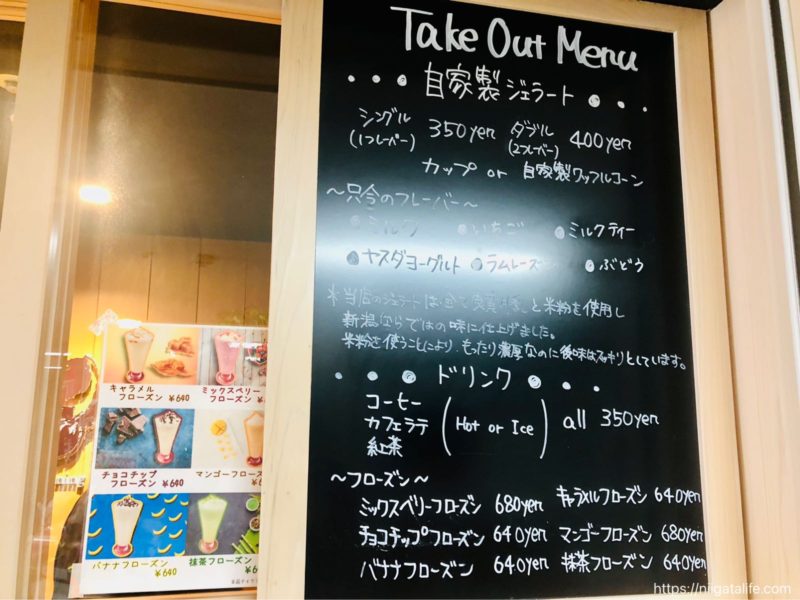 Take Out Menu
自家製ジェラート
シングル (1フレーバー) 350yen ダブル (2フレーバー) 400yen
カップ or 自家製ワッフルコーン
～只今のフレーバー～
ミルク いちご ミルクティー
ヤスダヨーグルト ラムレーズン ぶどう
当店のジェラートは全て と米粉を使用し
新潟ならではの味に仕上げました。
米粉を使うことにより、もったり濃厚なのに後味はスッキリとしています。
ドリンク
コーヒー
カフェラテ (Hot or Ice) all 350yen
紅茶
～フローズン～
ミックスベリーフローズン 680yen キャラメルフローズン 640yen
チョコチップフローズン 640yen マンゴーフローズン 680yen
バナナフローズン 640yen 抹茶フローズン 640yen
キャラメル ミックスベリー
フローズン ¥640 フローズン
チョコチップ マンゴーフロー
フローズン ¥640
バナナフローズン 抹茶フローズン
¥640 ¥640
https://niigatalife.com